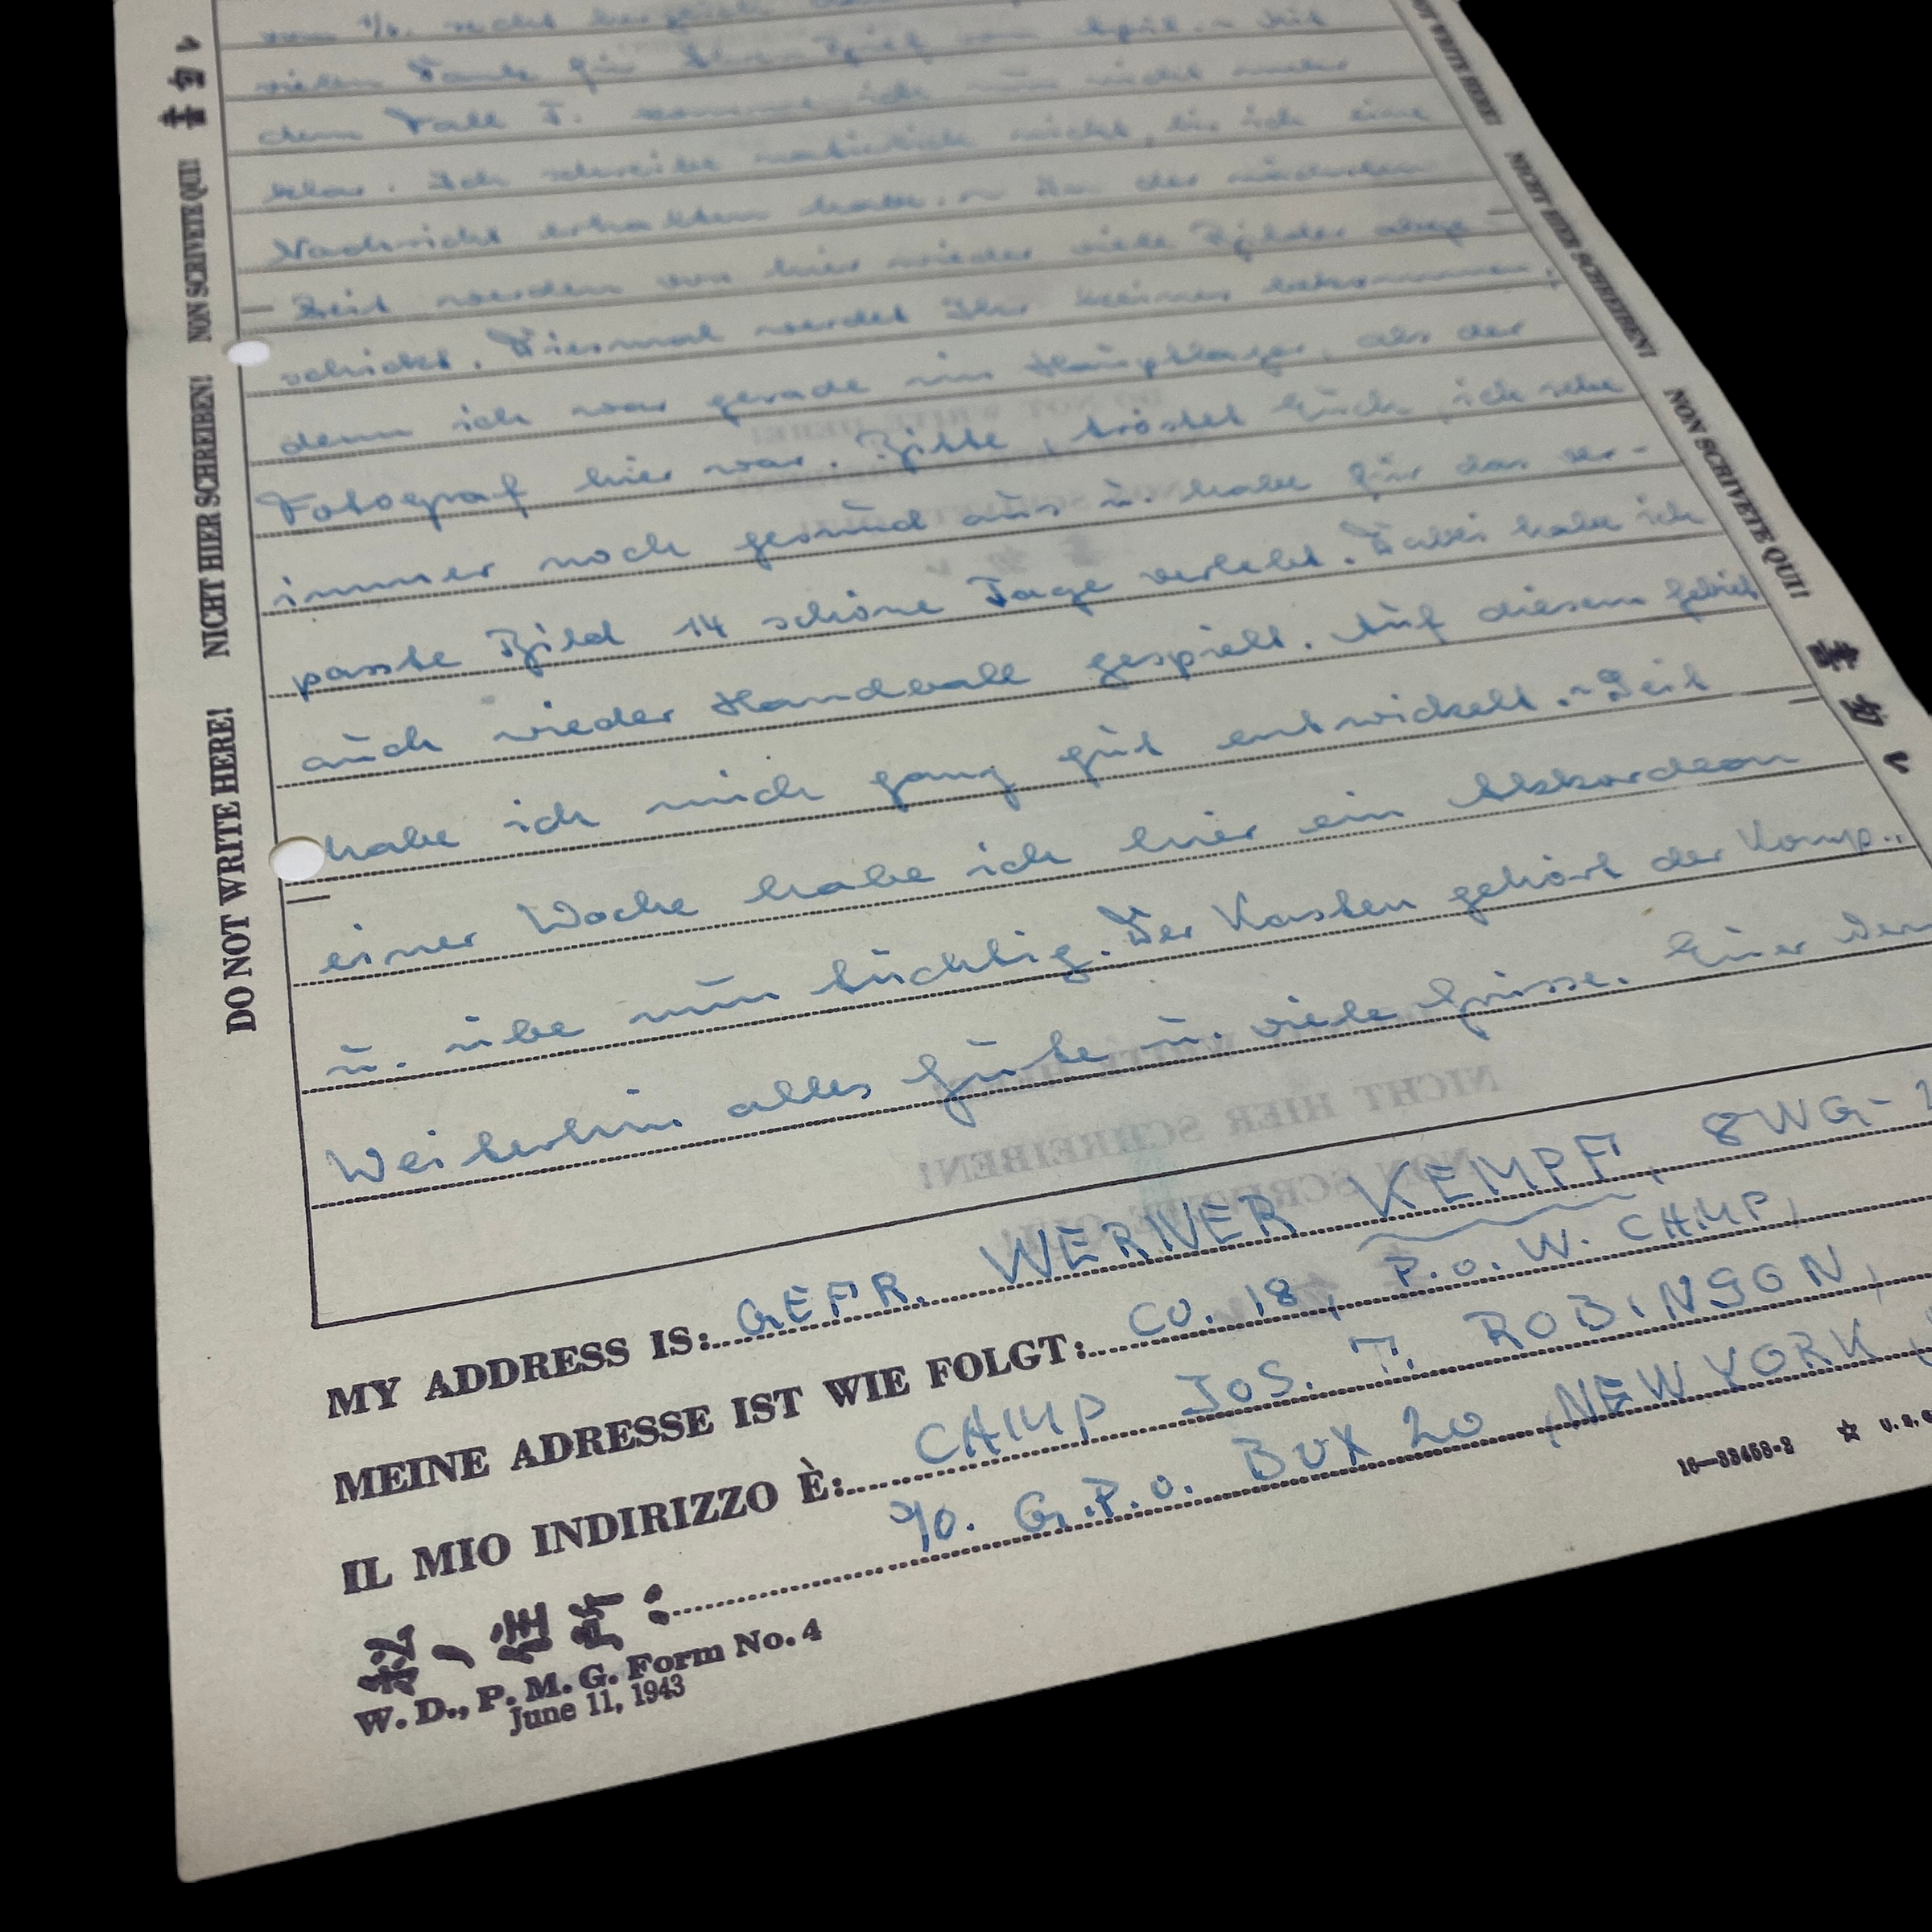 vom 1/6. recht herzlich
vielen Dank für Ihren Brief vom April. ~ Mit
dem Fall F. komme ich nun nicht mehr
klar. Ich schreibe natürlich nicht, bis ich eine
Nachricht erhalten habe. ~ In der nächsten
Zeit werden von hier wieder viele Bilder abge-
schickt. Diesmal werdet Ihr keines bekommen,
denn ich war gerade im Hauptlager, als der
Fotograf hier war. Bitte, tröstet Euch, ich sehe
immer noch gesund aus u. habe für das ver-
passte Bild 14 schöne Tage verlebt. Dabei habe ich
auch wieder Handball gespielt. Auf diesem Gebiet
habe ich mich ganz gut entwickelt. ~ Seit
einer Woche habe ich hier ein Akkordeon
u. übe nun tüchtig. Der Kasten gehört der Komp..
Weiterhin alles Gute u. viele Grüsse. Euer
MY ADDRESS IS: GEFR. WERNER KEMPF, 8WG-
MEINE ADRESSE IST WIE FOLGT: CO. 18, P.O.W. CAMP,
IL MIO INDIRIZZO È: CAMP JOS. T. ROBINSON,
℅. G.P.O. BOX 20, NEW YORK,
W. D., P. M. G. Form No. 4
June 11, 1943
16—33453-3 ☆ U. S.
DO NOT WRITE HERE! NICHT HIER SCHREIBEN! NON SCRIVETE QUI!
NOT WRITE HERE! NICHT HIER SCHREIBEN! NON SCRIVETE QUI!
NICHT HIER SCHREIBEN!